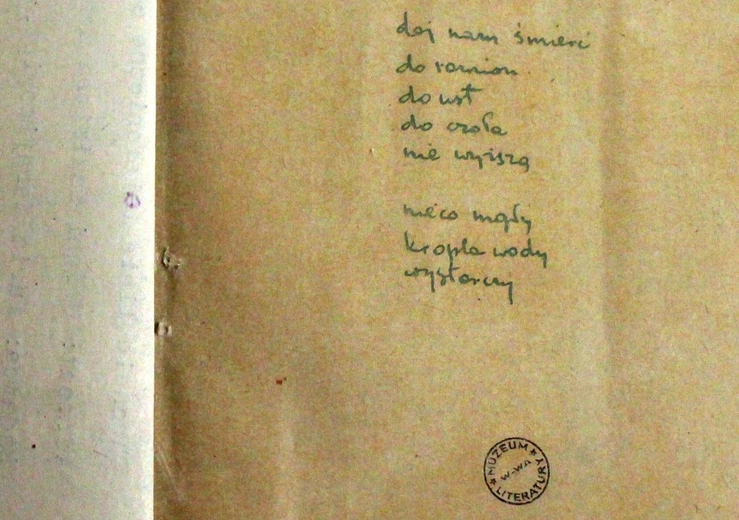 daj nam śmierć
do ramion
do ust
do czoła
nie wyższą

nieco mgły
kropla wody
wystarczy

MUZEUM LITERATURY
W-WA